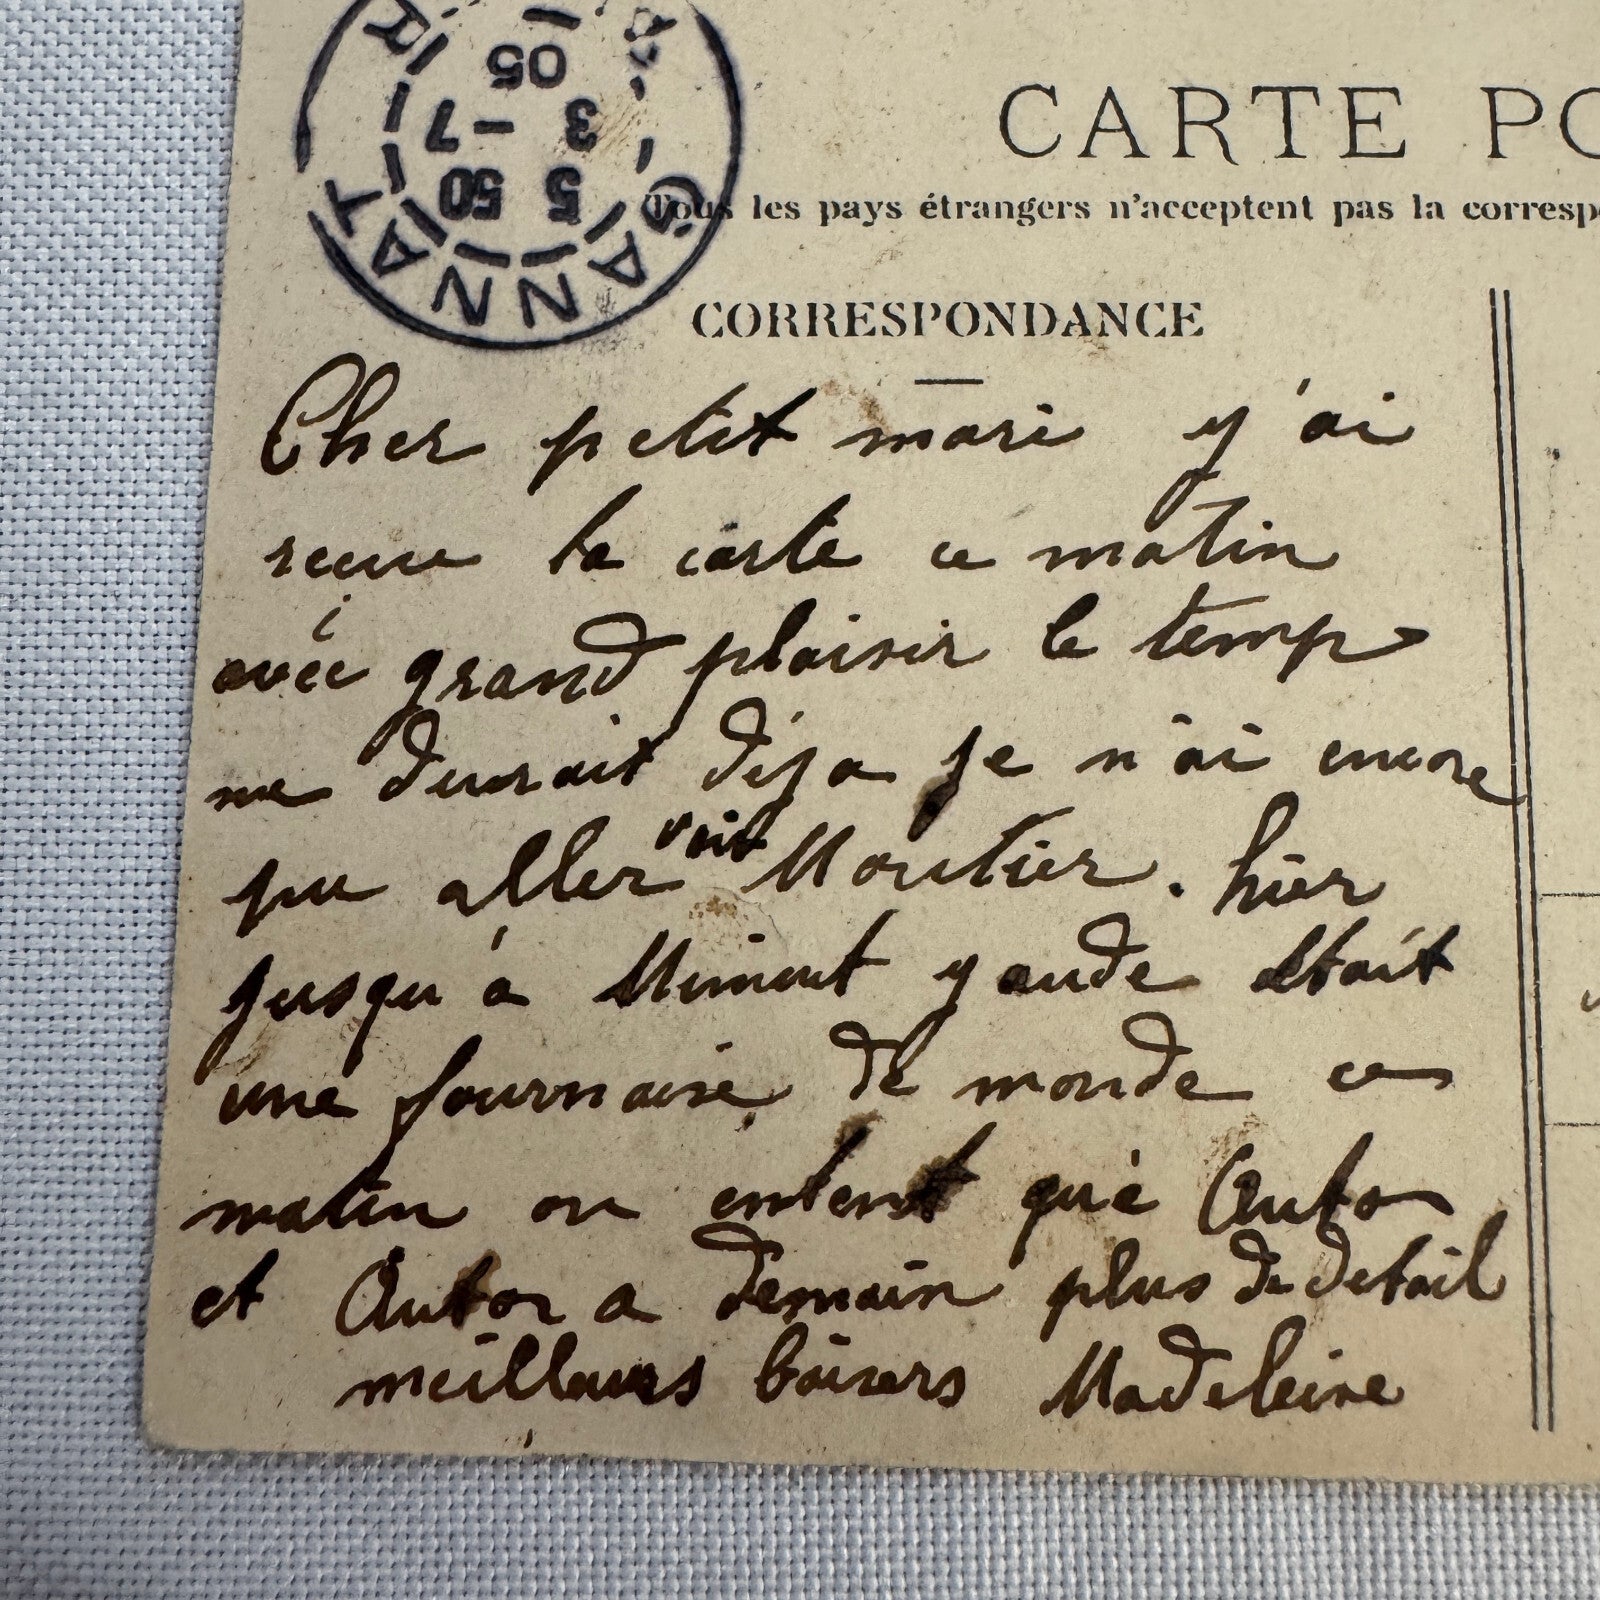 GANNAT
5 50
3 -7
05
CARTE PO
Tous les pays étrangers n'acceptent pas la corresp
CORRESPONDANCE
Cher petit mari y'ai
recue ta carte ce matin
avec grand plaisir le temp
me durait déja je n'ai encore
pu aller voir Moutier. hier
jusqu'à Minuit yaude était
une fournaise de monde ce
matin on entent que Auto
et Auto a demain plus de detail
meilleurs baisers Madeleine